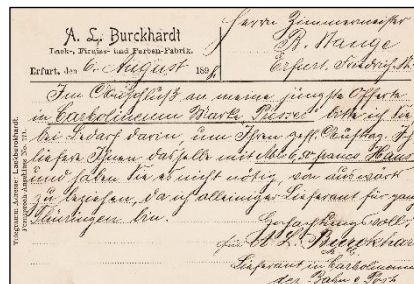 A. L. Burckhardt
Lack-, Firniss- und Farben-Fabrik.
Erfurt, den 6. August 189
Herrn Zimmermeister
R. Wange
Erfurt. Friedrich
Im Anschluß an meine jüngste Offerte
in Carbolineum Marke bitte ich Sie
bei Bedarf darin, um Ihren gefl. Auftrag. Ich
liefere Ihnen dasselbe mit Mk 6,50 franco Haus
und haben Sie es nicht nötig, von auswärts
zu beziehen, da ich alleiniger Lieferant für ganz
Thüringen bin.
Hochachtungsvoll
für A. L. Burckhar
Lieferant in Carbolineum
der Bahn & Post
Telegramm-Adresse: Lackburckhardt.
Fernsprech-Anschluss No.